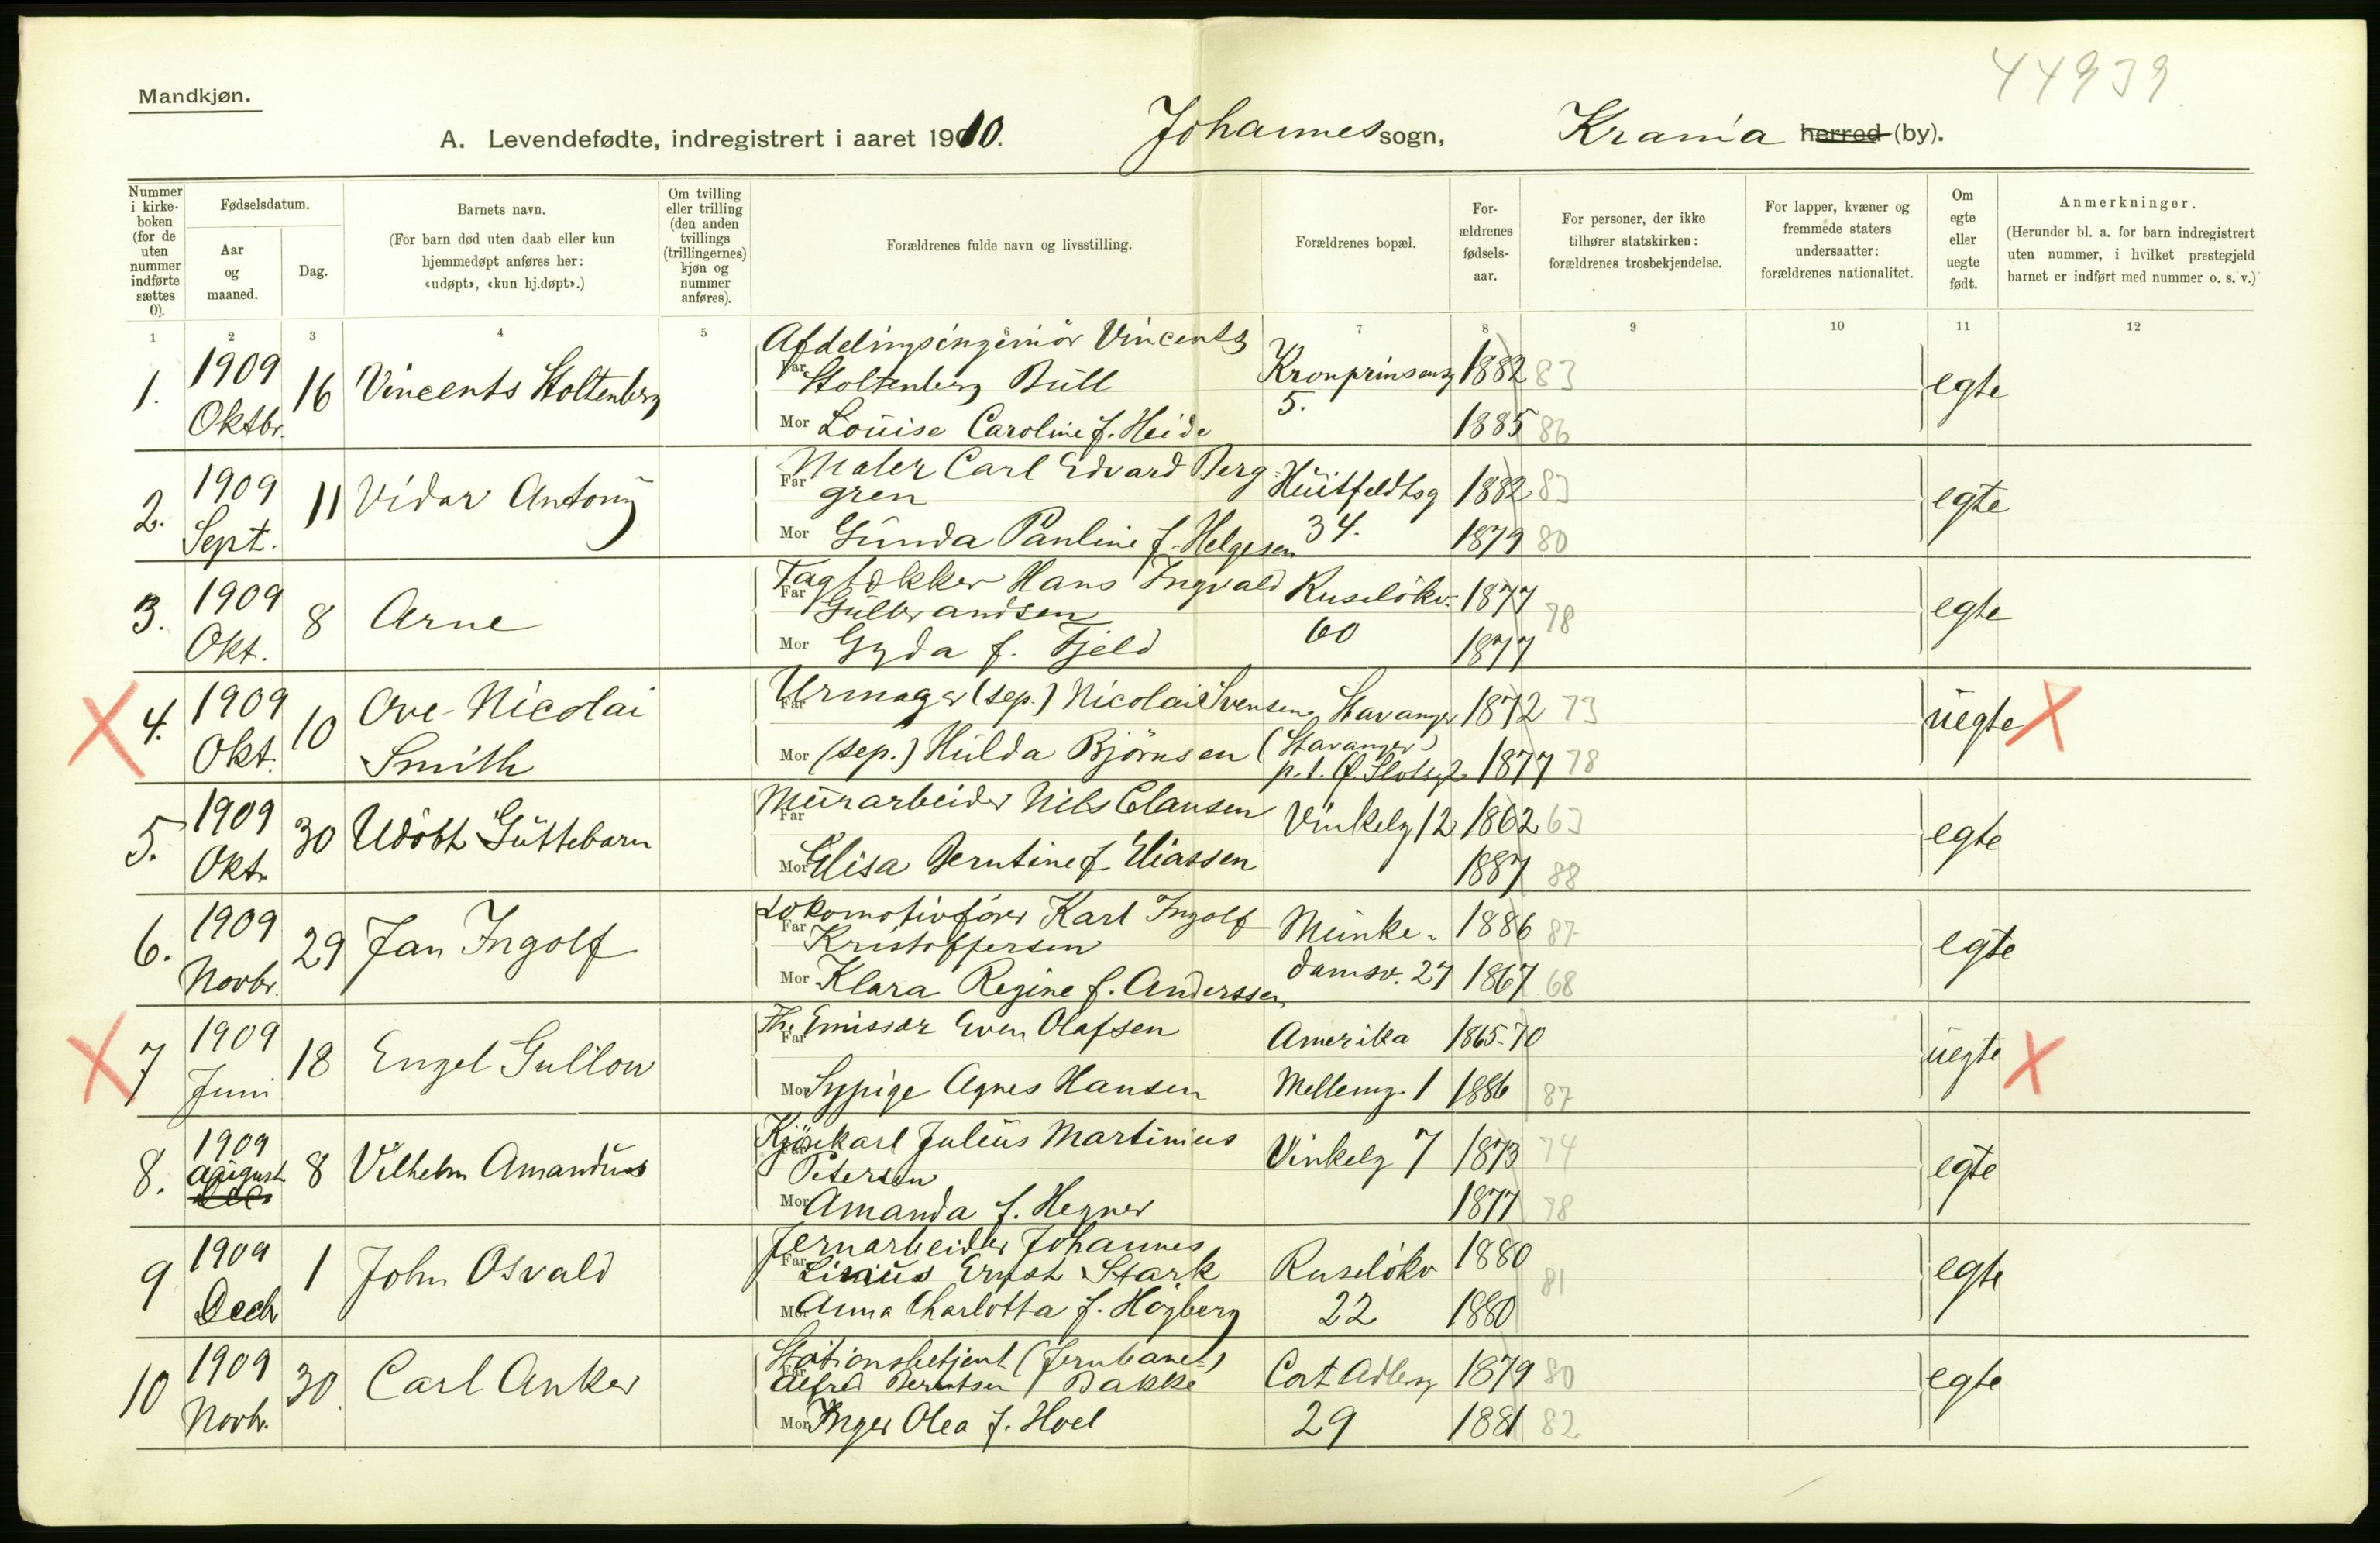 44939
Mandkjøn.
A. Levendefødte, indregistrert i aaret 1910. Johannes sogn, Krania herred (by).
Nummer i kirke- boken (for de uten nummer indførte sættes 0).
Fødselsdatum.
Aar og maaned.
Dag.
Barnets navn.
(For barn død uten daab eller kun hjemmedøpt anføres her: «udøpt», «kun hj.døpt».)
Om tvilling eller trilling (den anden tvillings (trillingernes) kjøn og nummer anføres).
Forældrenes fulde navn og livsstilling.
Forældrenes bopæl.
For- ældrenes fødsels- aar.
For personer, der ikke tilhører statskirken: forældrenes trosbekjendelse.
For lapper, kvæner og fremmede staters undersaatter: forældrenes nationalitet.
Om egte eller uegte født.
Anmerkninger.
(Herunder bl. a. for barn indregistrert uten nummer, i hvilket prestegjeld barnet er indført med nummer o. s. v.)
1 2 3 4 5 6 7 8 9 10 11 12
1. 1909 Oktbr. 16 Vincents Stoltenberg
Afdelingsingeniør Vincents
Far Stoltenberg Bull Kronprinsensg 5. 1882 83 egte
Mor Louise Caroline f. Heide 1885 86
2. 1909 Sept. 11 Vidar Antony
Far Maler Carl Edvard Berg-
gren Huitfeldtsg 34. 1882 83 egte
Mor Gunda Pauline f. Helgesen 1879 80
3. 1909 Okt. 8 Arne
Far Tagtækker Hans Ingvald
Gulbrandsen Ruseløkv. 60 1877 78 egte
Mor Gyda f. Fjeld 1877
4. 1909 Okt. 10 Ove Nicolai Smith
Far Urmager (sep.) Nicolai Svensen, Stavanger 1872 73 uegte
Mor (sep.) Hulda Bjørnsen (Stavanger) p.t. Ø. Slotsg 2 1877 78
5. 1909 Okt. 30 Udøbt Guttebarn
Far Murarbeider Nils Clausen Vinkelg 12 1862 63 egte
Mor Elisa Berntine f. Eliassen 1887 88
6. 1909 Novbr. 29 Jan Ingolf
Far Lokomotivfører Karl Ingolf
Kristoffersen Munke- damsv. 27 1886 87 egte
Mor Klara Regine f. Anderssen 1867 68
7 1909 Juni 18 Engel Gullow
Far Th. Emissær Even Olafsen Amerika 1865-70 uegte
Mor Sypige Agnes Hansen Mellemg. 1 1886 87
8. 1909 August 8 Vilhelm Amandus
Far Kjørekarl Julius Martinius
Petersen Vinkelg 7 1873 74 egte
Mor Amanda f. Hegner 1877 78
9 1909 Decb 1 John Osvald
Far Jernarbeider Johannes
Linius Ernst Stark Ruseløkv 22 1880 81 egte
Mor Anna Charlotta f. Högberg 1880
10 1909 Novb. 30. Carl Anker
Far Stationsbetjent (Jernbanet)
Alfred Berntsen Bakke Cort Adlersg 29 1879 80 egte
Mor Inger Olea f. Hoel 1881 82